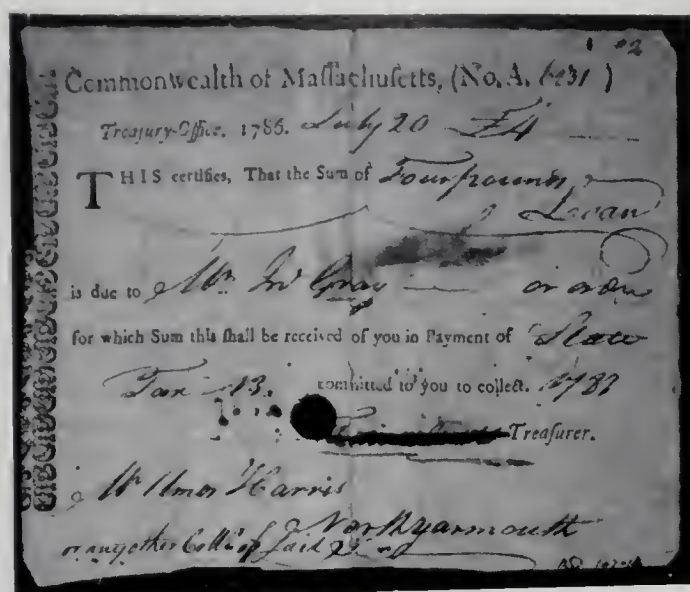 #2
Commonwealth of Massachusetts, (No. A. )
Treasury-Office. 1786. July 20 £4
THIS certifies, That the Sum of Four pounds
is due to Mr Gray or order
for which Sum this shall be received of you in Payment of State
Tax committed to you to collect.
Treasurer.
Mr Amos Harris
North yarmouth
or any other Coll of said